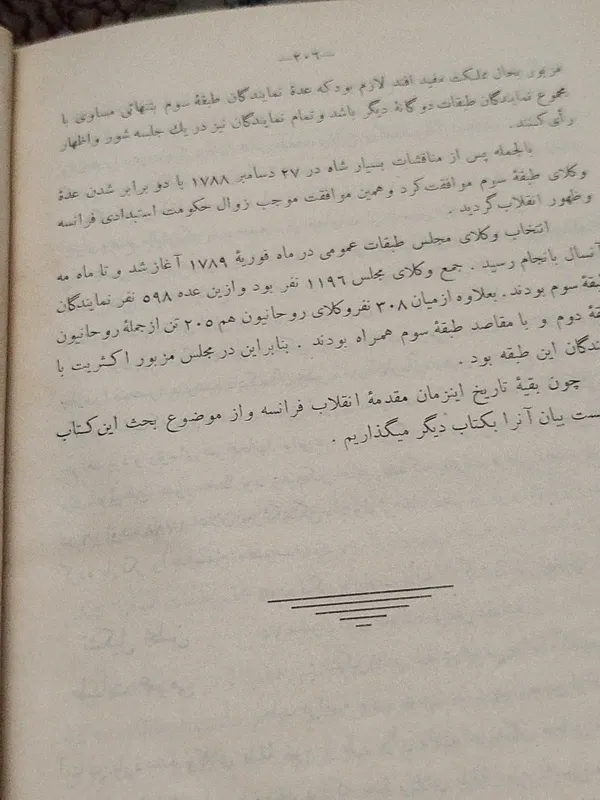 —۲۰۶—
مزبور بحال مملکت مفید افتد لازم بود که عدهٔ نمایندگان طبقهٔ سوم بتنهائی مساوی با
مجموع نمایندگان طبقات دوگانهٔ دیگر باشد و تمام نمایندگان نیز در یك جلسه شور و اظهار
رأی کنند.
بالجمله پس از مناقشات بسیار شاه در ۲۷ دسامبر ۱۷۸۸ با دو برابر شدن عدهٔ
وکلای طبقهٔ سوم موافقت کرد و همین موافقت موجب زوال حکومت استبدادی فرانسه
و ظهور انقلاب گردید .
انتخاب وکلای مجلس طبقات عمومی در ماه فوریهٔ ۱۷۸۹ آغاز شد و تا ماه مه
آنسال بانجام رسید . جمع وکلای مجلس ۱۱۹۶ نفر بود و ازین عده ۵۹۸ نفر نمایندگان
طبقهٔ سوم بودند . بعلاوه از میان ۳۰۸ نفر وکلای روحانیون هم ۲۰۵ تن از جملهٔ روحانیون
دوم و با مقاصد طبقهٔ سوم همراه بودند . بنابراین در مجلس مزبور اکثریت با
این طبقه بود .
چون بقیهٔ تاریخ اینزمان مقدمهٔ انقلاب فرانسه و از موضوع بحث این کتاب
بیان آنرا بکتاب دیگر میگذاریم .